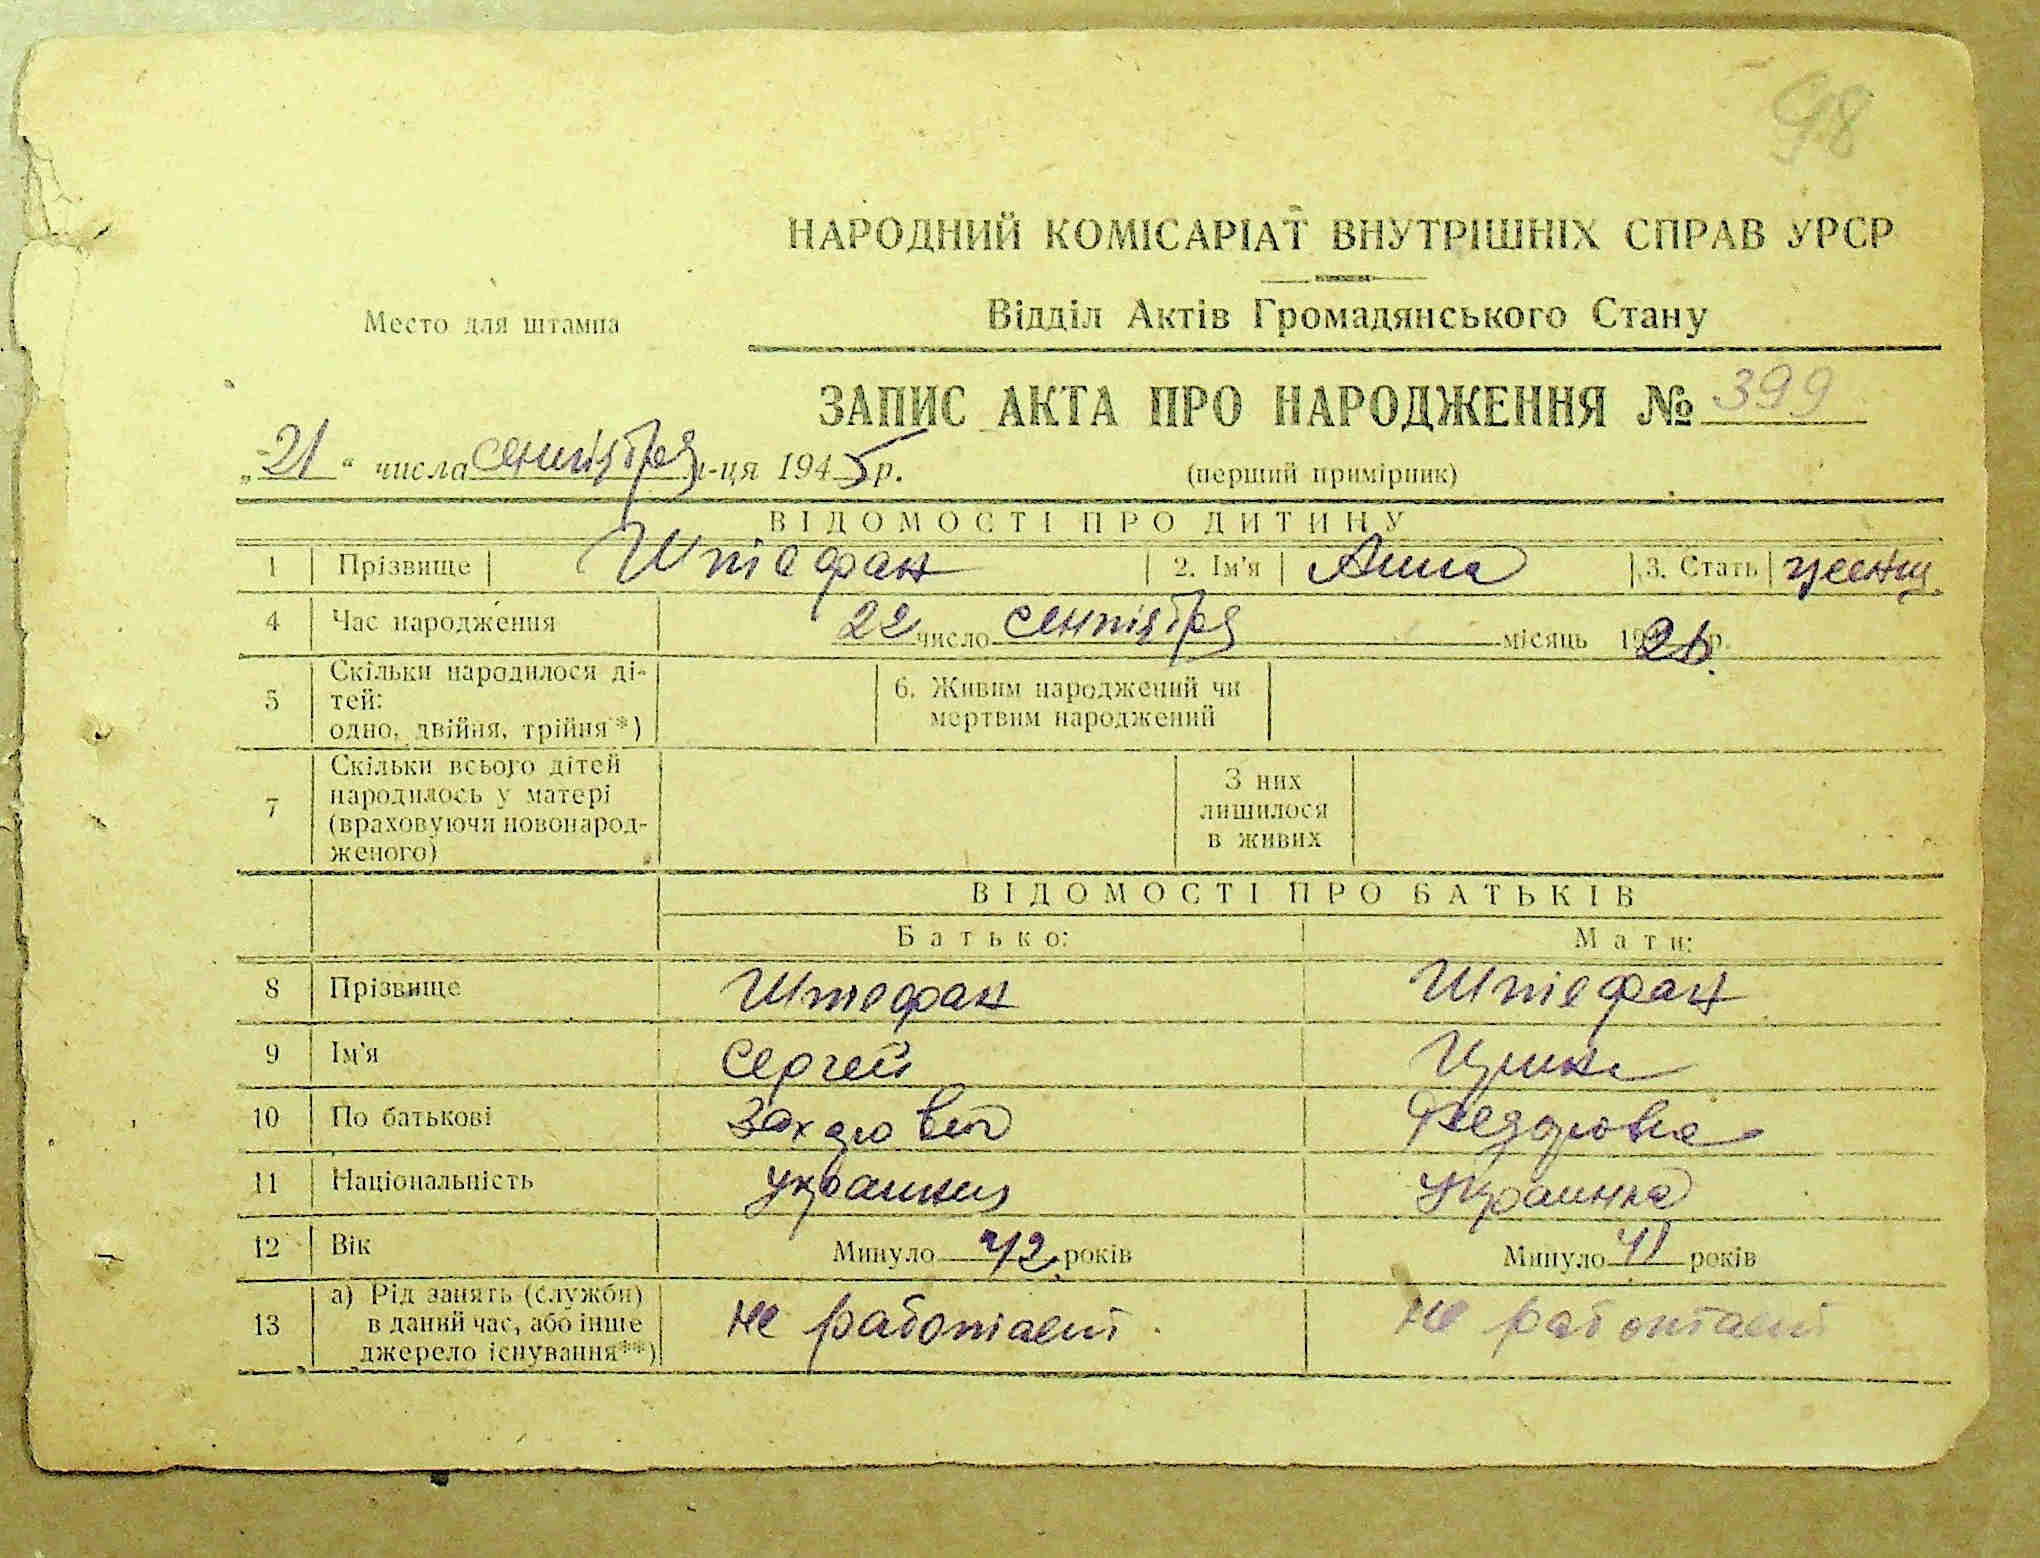 98
НАРОДНИЙ КОМІСАРІАТ ВНУТРІШНІХ СПРАВ УРСР
Место для штампа
Відділ Актів Громадянського Стану
ЗАПИС АКТА ПРО НАРОДЖЕННЯ № 399
„21“ числа сентября м-ця 1945 р.
(перший примірник)
ВІДОМОСТІ ПРО ДИТИНУ
1 Прізвище Штефан 2. Ім'я Анна 3. Стать женщ.
4 Час народження 22 число сентября місяць 19 р.
5 Скільки народилося ді-
тей:
одно, двійня, трійня*)
6. Живим народжений чи
мертвим народжений
7 Скільки всього дітей
народилось у матері
(враховуючи новонарод-
женого)
З них
лишилося
в живих
ВІДОМОСТІ ПРО БАТЬКІВ
Батько: Мати:
8 Прізвище Штефан Штефан
9 Ім'я Сергей
10 По батькові Федоровна
11 Національність украинец Украинка
12 Вік Минуло 42 років Минуло 41 років
13 а) Рід занять (служби)
в даний час, або інше
джерело існування**)
не работает не работает